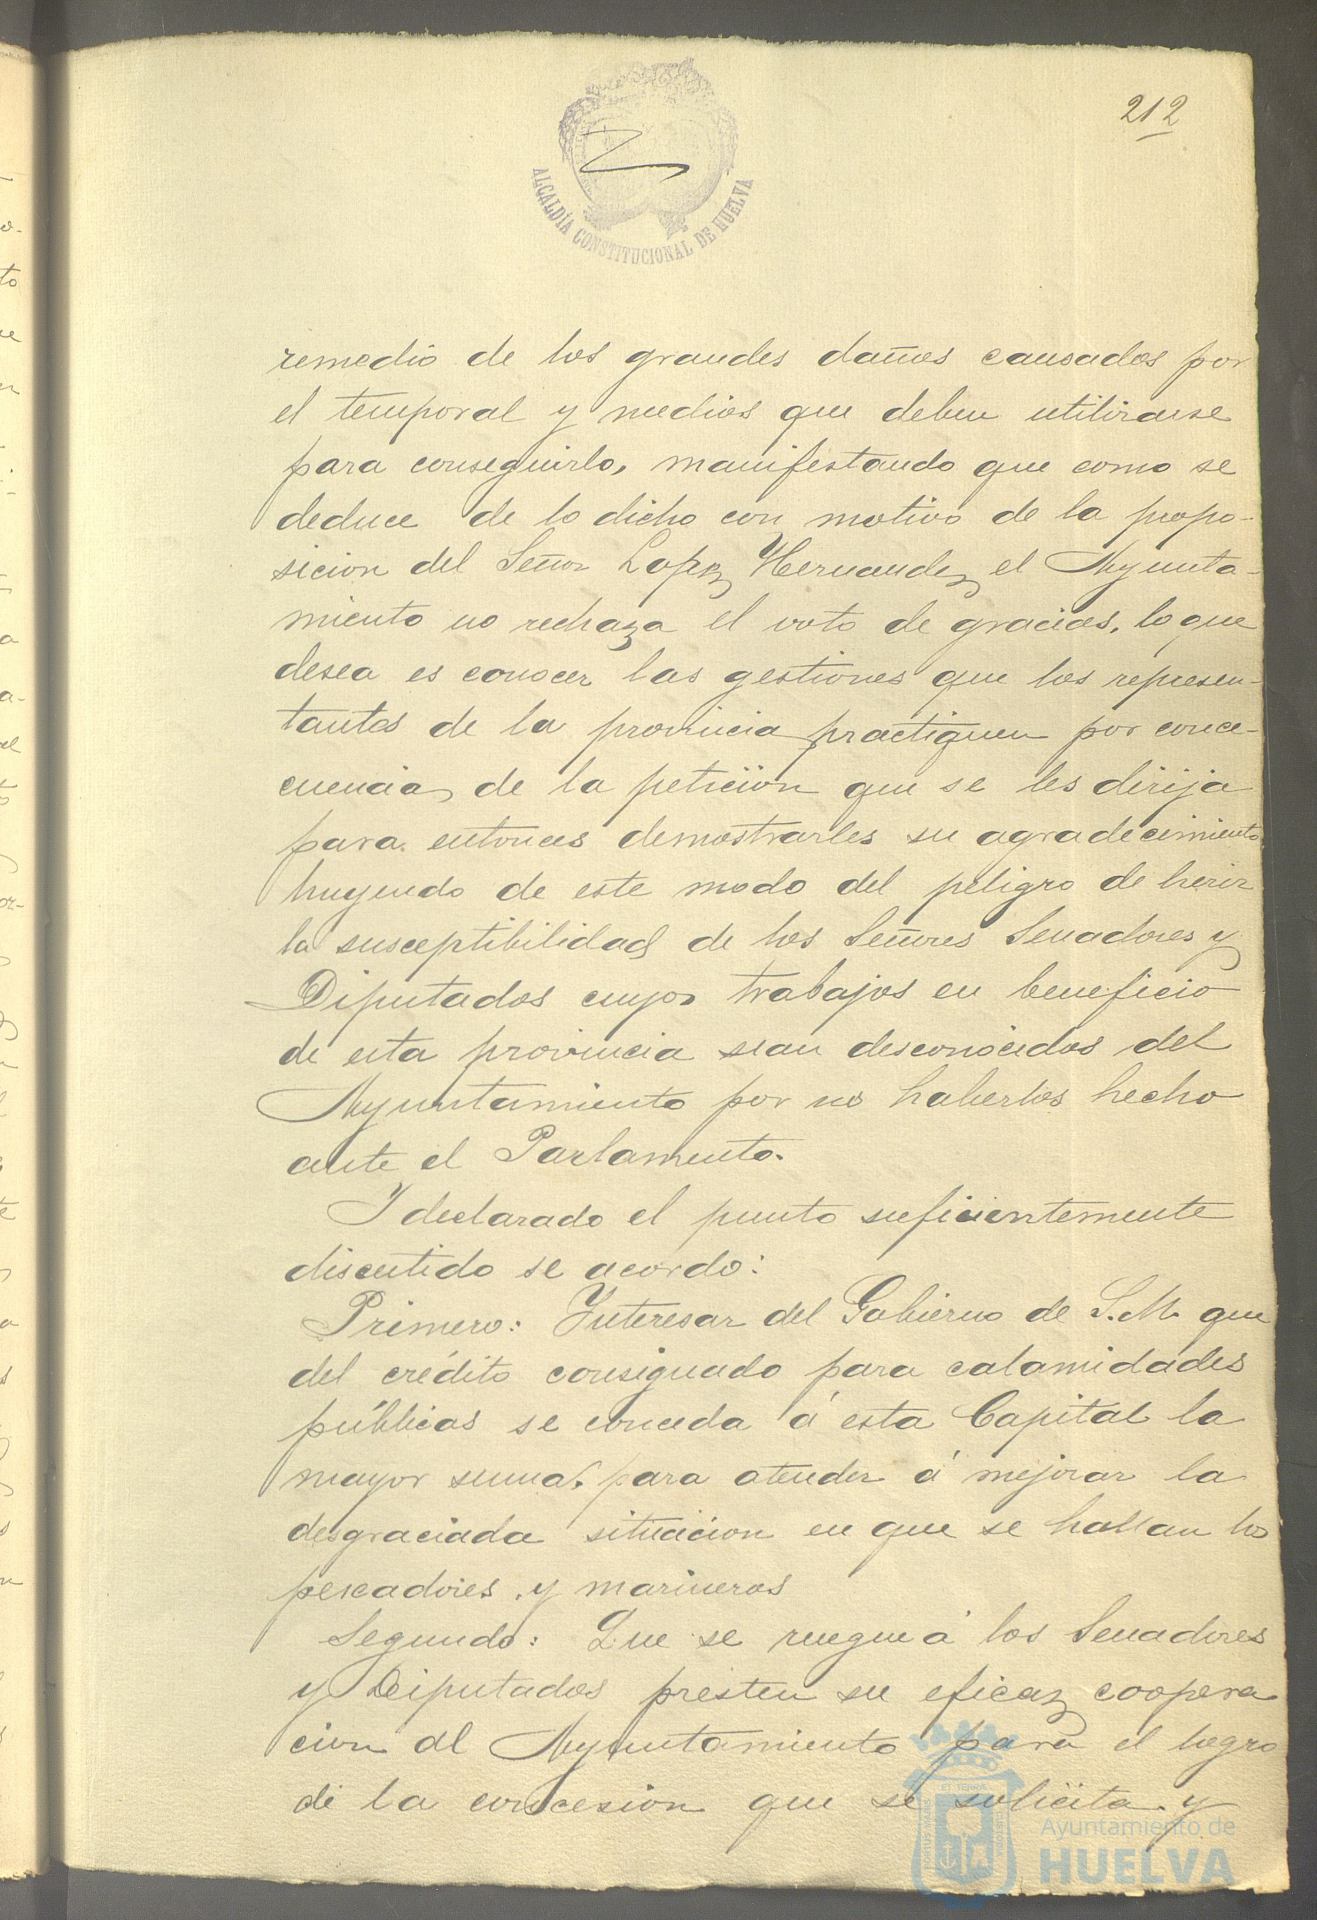 212
ALCALDÍA CONSTITUCIONAL DE HUELVA
remedio de los grandes daños causados por
el temporal y medios que deben utilizarse
para conseguirlo, manifestando que como se
deduce de lo dicho con motivo de la propo-
sicion del Señor Lopez Hernandez el Ayunta-
miento no rechaza el voto de gracias, lo que
desea es conocer las gestiones que los represen-
tantes de la provincia practiquen por conce-
cuencia de la petición que se les dirija
para entonces demostrarles su agradecimiento
huyendo de este modo del peligro de herir
la susceptibilidad de los Señores Senadores y
Diputados cuyos trabajos en beneficio
de esta provincia sean desconocidos del
Ayuntamiento por no haberlos hecho
ante el Parlamento.
Y declarado el punto suficientemente
discutido se acordo:
Primero: Interesar del Gobierno de S.M. que
del crédito consignado para calamidades
públicas se conceda á esta Capital la
mayor suma para atender á mejorar la
desgraciada situacion en que se hallan los
pescadores y marineros
Segundo: Que se ruegue á los Senadores
y Diputados presten su eficaz coopera
cion al Ayuntamiento para el logro
de la concesion que se solicita y
Ayuntamiento de
HUELVA